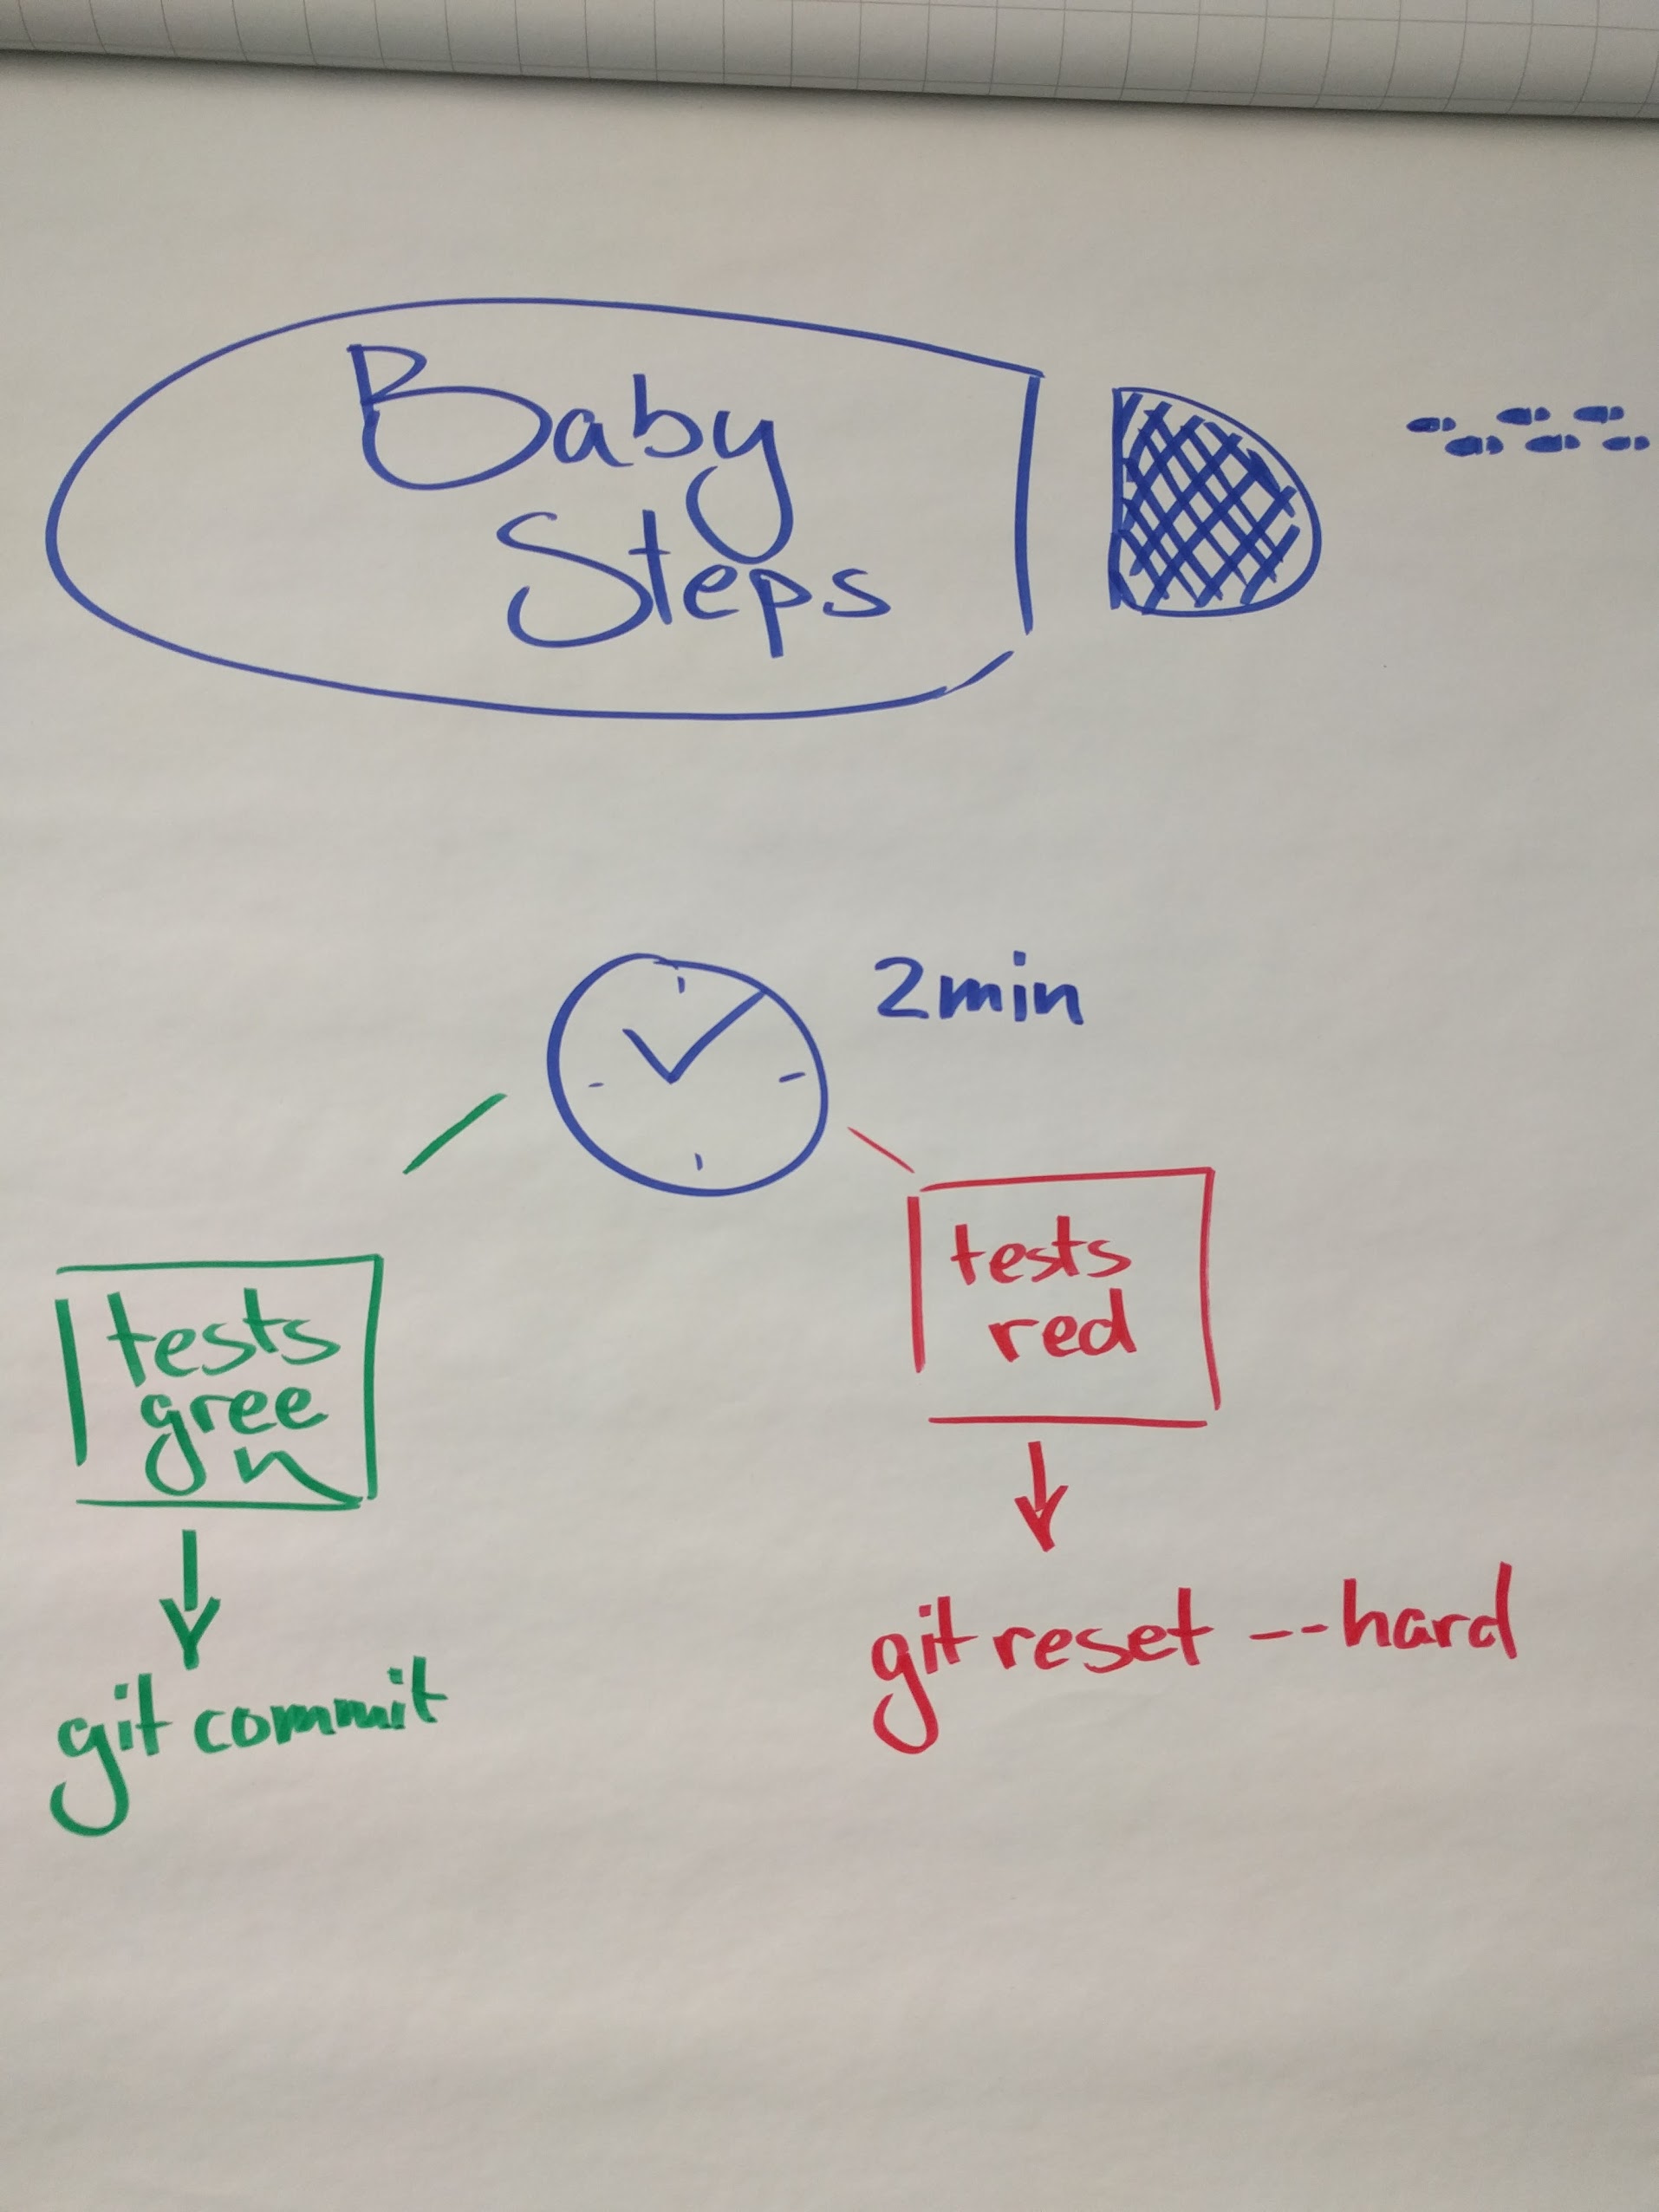 Baby
Steps
2min
tests
gree
n
git commit
tests
red
git reset --hard